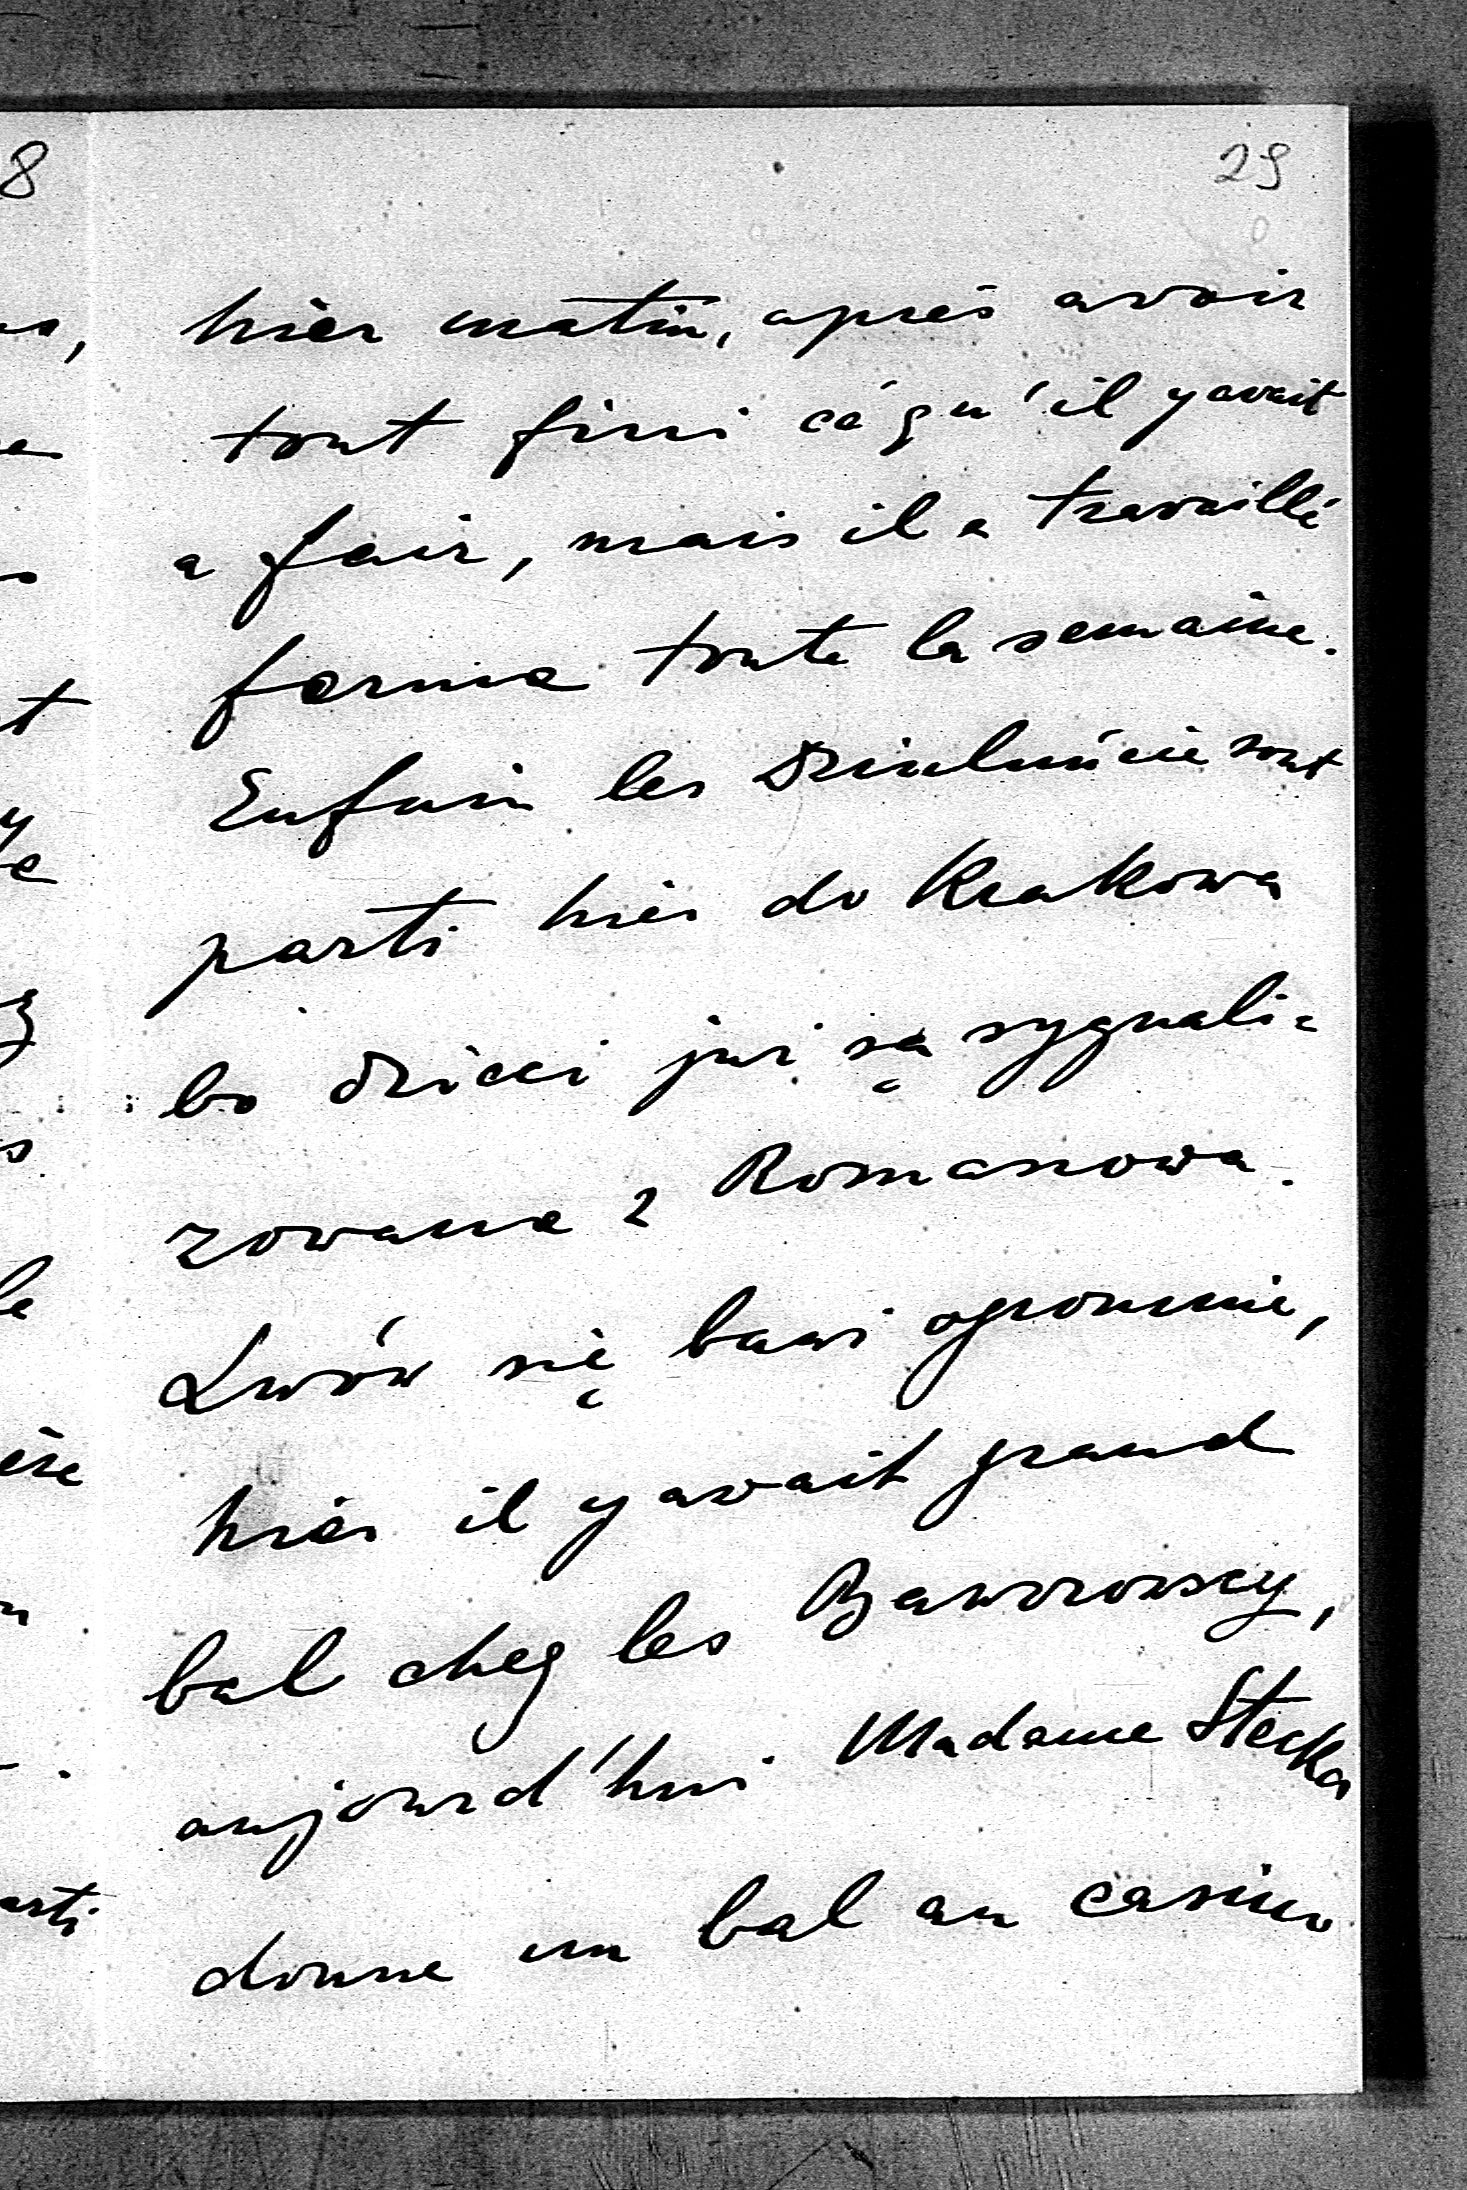 29
hier matin, après avoir
tout fini ce qu'il y avait
a fair, mais il a travaillé
ferme toute la semaine.
Enfuin les sont
parti hier do Krakowa
bo dzieci już są sygnali=
zowane z Romanowa.
Lwów się bawi ogromnie,
hier il y avait grand
bal cheg les Baworowscy,
aujourd'hui Madame Stecka
donne un bal au casino